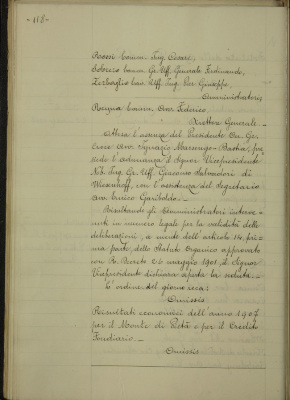 - 118 -
Rossi Comm. Ing. Cesare,
Comm. Gr. Uff. Generale Ferdinando,
Zerboglio Cav. Uff. Ing. Giuseppe,
Amministratori
Rougna Comm. Avv. Federico,
Direttore Generale. -
Attesa l'assenza del Presidente
Avv. Ignazio Marsengo-Bastia,
siede l'adunanza il Signor Vicepresidente
Nob. Ing. Gr. Uff. Giacomo Salvadori di
Wiesenhoff, con l'assistenza del Segretario
Avv. Enrico Gariboldo. -
Risultando gli Amministratori interve
nuti in numero legale per la validità delle
deliberazioni, a mente dell'articolo 14, pri
ma parte, dello Statuto Organico approvato
con R. Decreto 26 maggio 1901, il Signor
Vicepresidente dichiara aperta la seduta. -
L'ordine del giorno reca:
Omissis
Risultati economici dell'anno 1907
per il Monte di Pietà e per il Credito
Fondiario. -
Omissis